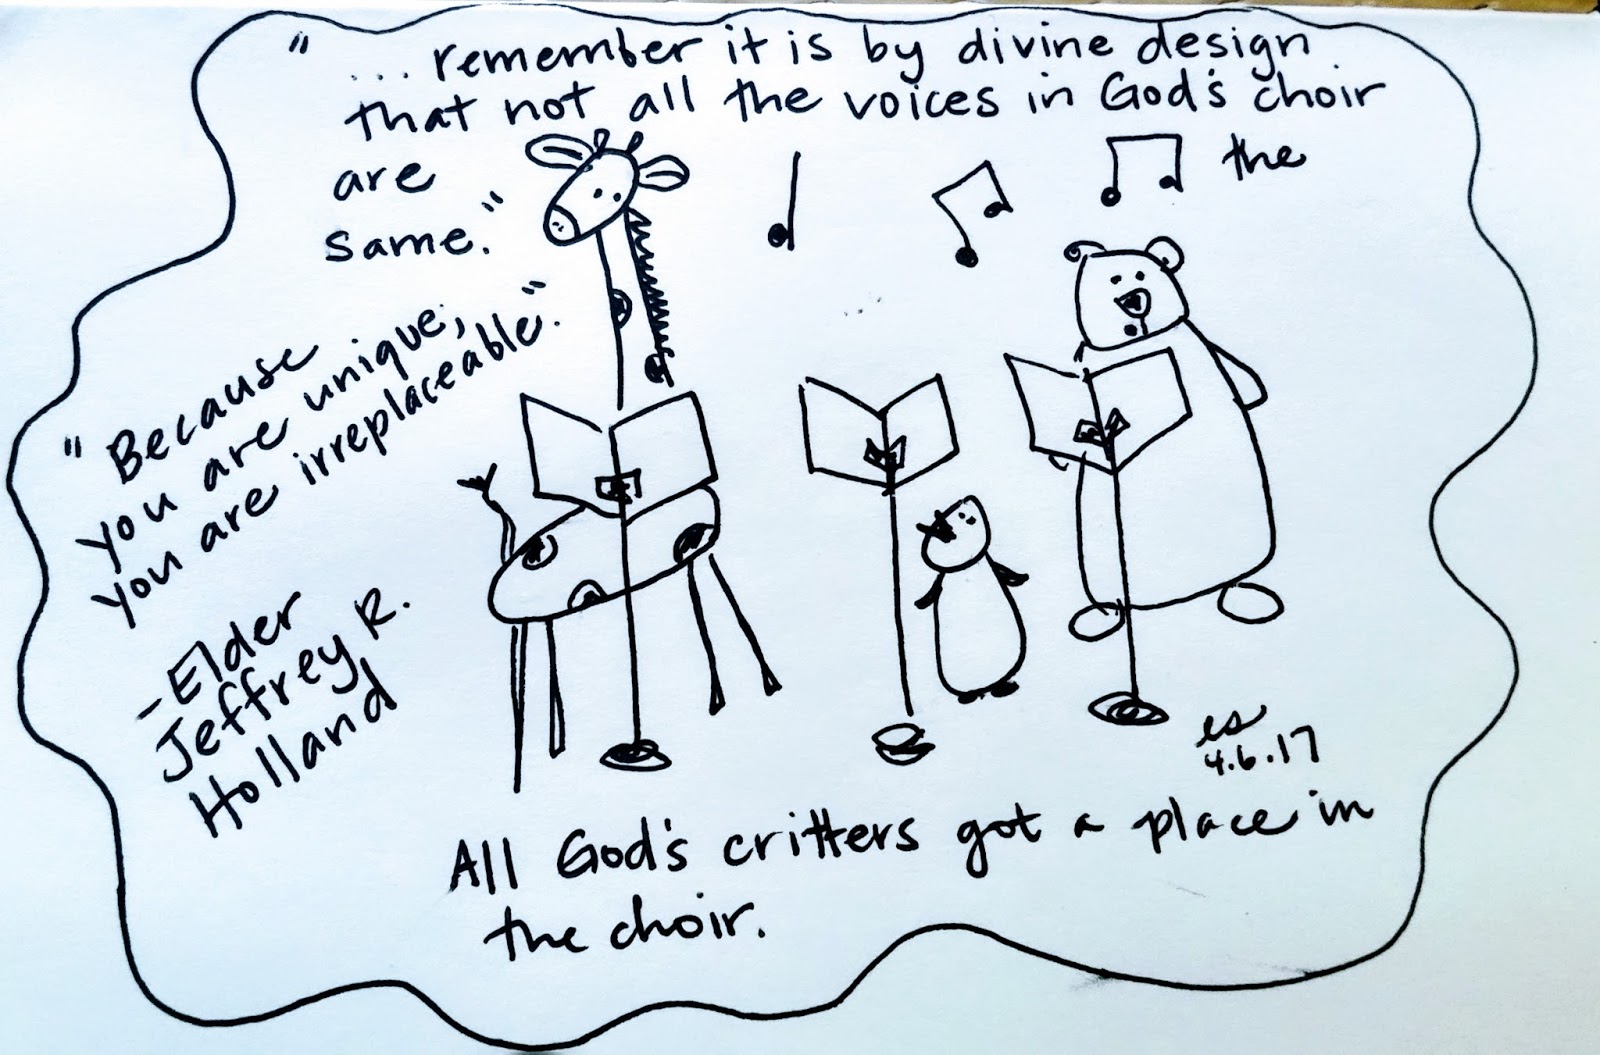 "... remember it is by divine design
that not all the voices in God's choir
are the
same."
"Because
you are unique,
you are irreplaceable."
-Elder
Jeffrey R.
Holland
es
4.6.17
All God's critters got a place in
the choir.